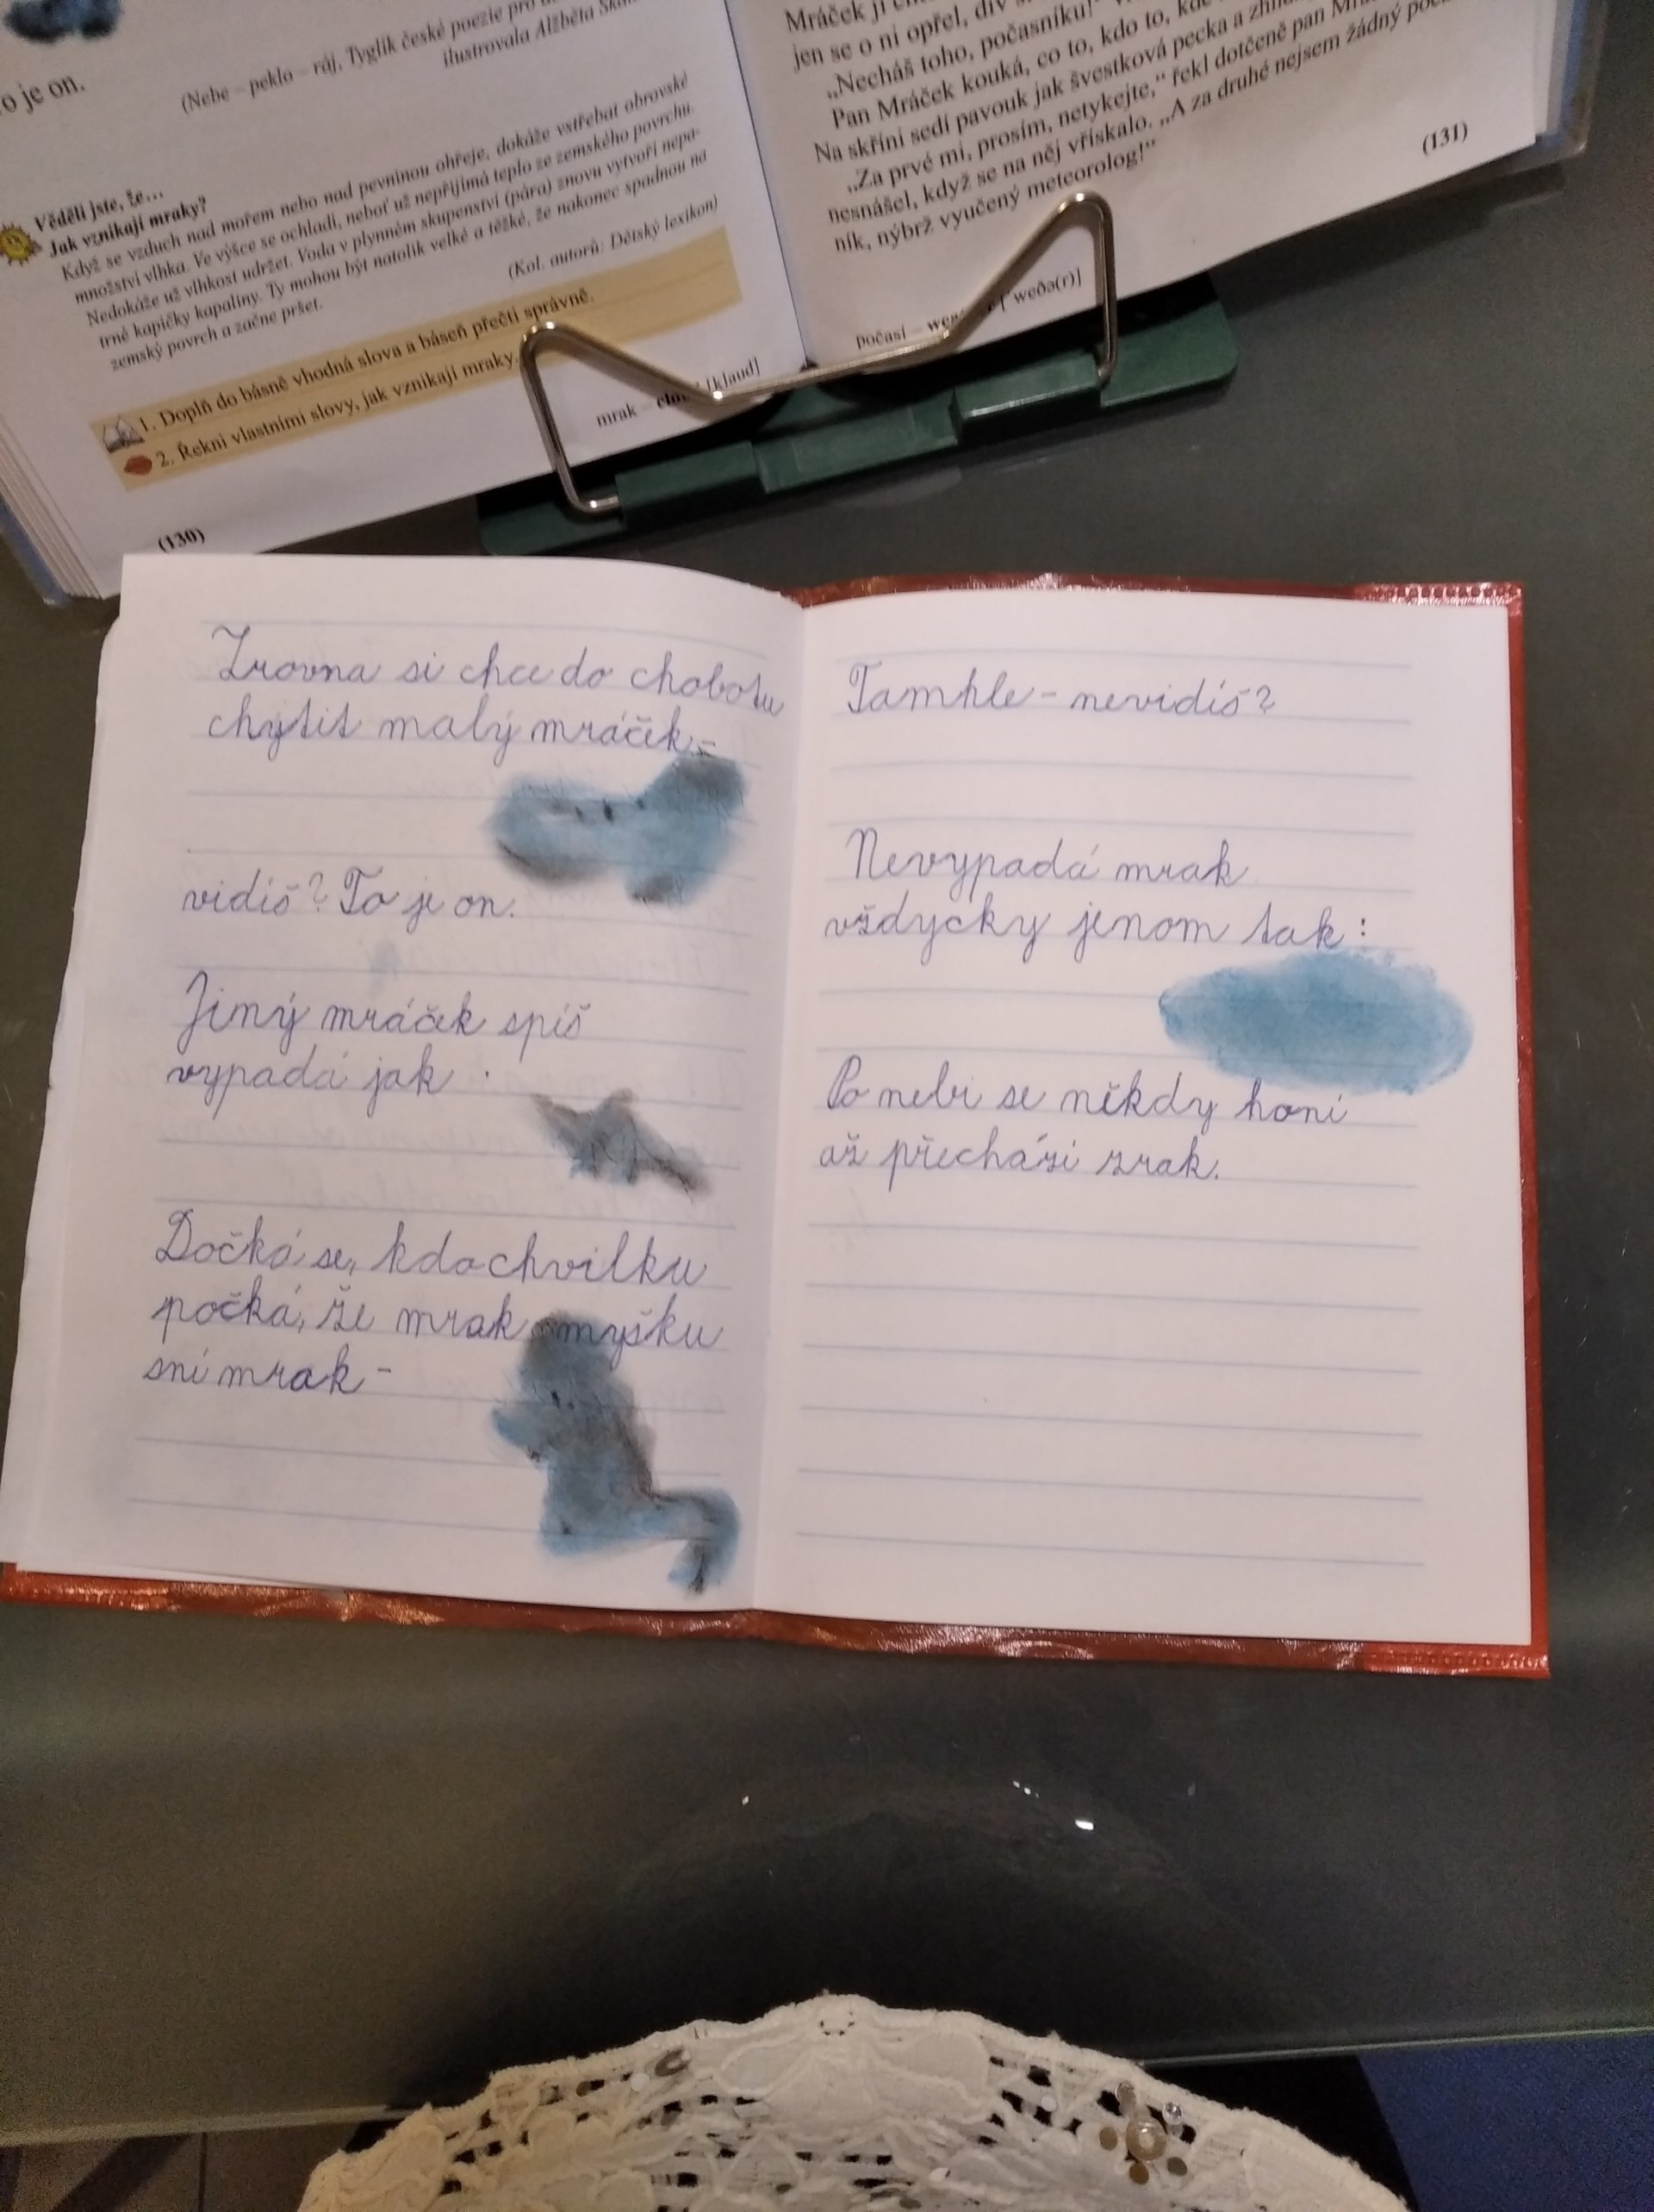 o je on.
(Nebe – peklo – ráj, Tyglík české poezie pro
ilustrovala Alžběta
Věděli jste, že…
Jak vznikají mraky?
Když se vzduch nad mořem nebo nad pevninou ohřeje, dokáže vstřebat obrovské
množství vlhka. Ve výšce se ochladí, neboť už nepřijímá teplo ze zemského povrchu.
Nedokáže už vlhkost udržet. Voda v plynném skupenství (pára) znovu vytvoří nepa-
trné kapičky kapaliny. Ty mohou být natolik velké a těžké, že nakonec spadnou na
zemský povrch a začne pršet.
(Kol. autorů: Dětský lexikon)
1. Doplň do básně vhodná slova a báseň přečti správně.
2. Řekni vlastními slovy, jak vznikají mraky.
mrak – [klaud]
(130)
Mráček jí
jen se o ni opřel, div
„Necháš toho, počasníku!“
Pan Mráček kouká, co to, kdo to,
Na skříni sedí pavouk jak švestková pecka a
„Za prvé mi, prosím, netykejte,“ řekl dotčeně pan
nesnášel, když se na něj vřískalo. „A za druhé nejsem žádný
ník, nýbrž vyučený meteorolog!“
(131)
počasí – [ˈweðə(r)]
Zrovna si chce do chobotu
chytit malý mráček –
vidíš? To je on.
Jiný mráček spíš
vypadá jak
Dočká se, kdo chvilku
počká, že mrak myšku
sní mrak –
Tamhle – nevidíš?
Nevypadá mrak
vždycky jenom tak:
Po nebi se někdy honí
až přechází zrak.